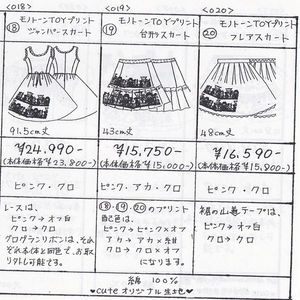 <018>
⑱ モノトーンTOYプリント
ジャンパースカート
91.5cm丈
¥24.990-
(本体価格¥23,800-)
ピンク・クロ
レースは、
ピンク→オフ白
クロ→クロ
グログランリボンは、それ
ぞれ身体と同色で、お取り
外し可能です。
<019>
⑲ モノトーンTOYプリント
台形スカート
43cm丈
¥15,750-
(本体価格¥15,000-)
ピンク・アカ・クロ
⑱・⑲・⑳のプリント
配色は、
ピンク→ピンク×オフ
アカ→アカ×紺
クロ→クロ×オフ
になります。
<020>
⑳ モノトーンTOYプリント
フレアスカート
48cm丈
¥16.590-
(本体価格¥15,800-)
ピンク・クロ
裾の山道テープは、
ピンク→オフ白
クロ→クロ
綿 100%
♥cuteオリジナル生地♥